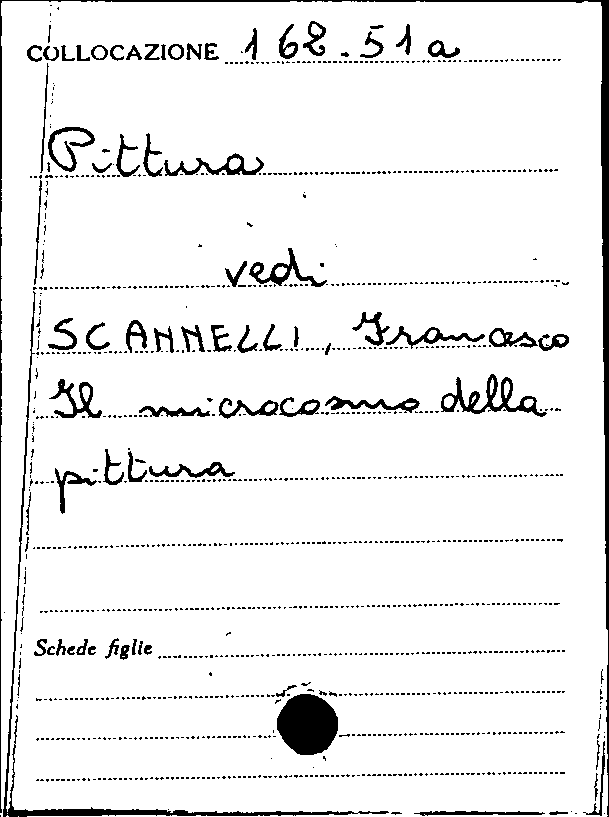 COLLOCAZIONE 162.51a
Pittura
vedi
SCANNELLI, Francesco
Il microcosmo della
pittura
Schede figlie